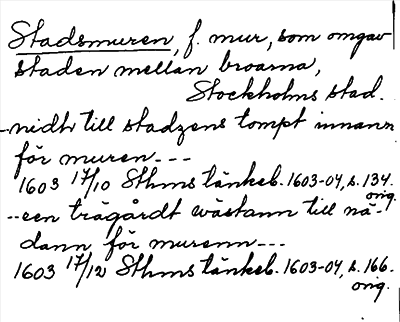 Stadsmuren, f. mur, som omgav
staden mellan broarna,
Stockholms stad.
--nidh till stadzens tompt innann
för muren---
1603 17/10 Sthms tänkeb. 1603-04, s. 134.
orig.
--een trägårdt wästann till nä-
dann för murenn---
1603 17/12 Sthms tänkeb. 1603-04, s. 166.
orig.